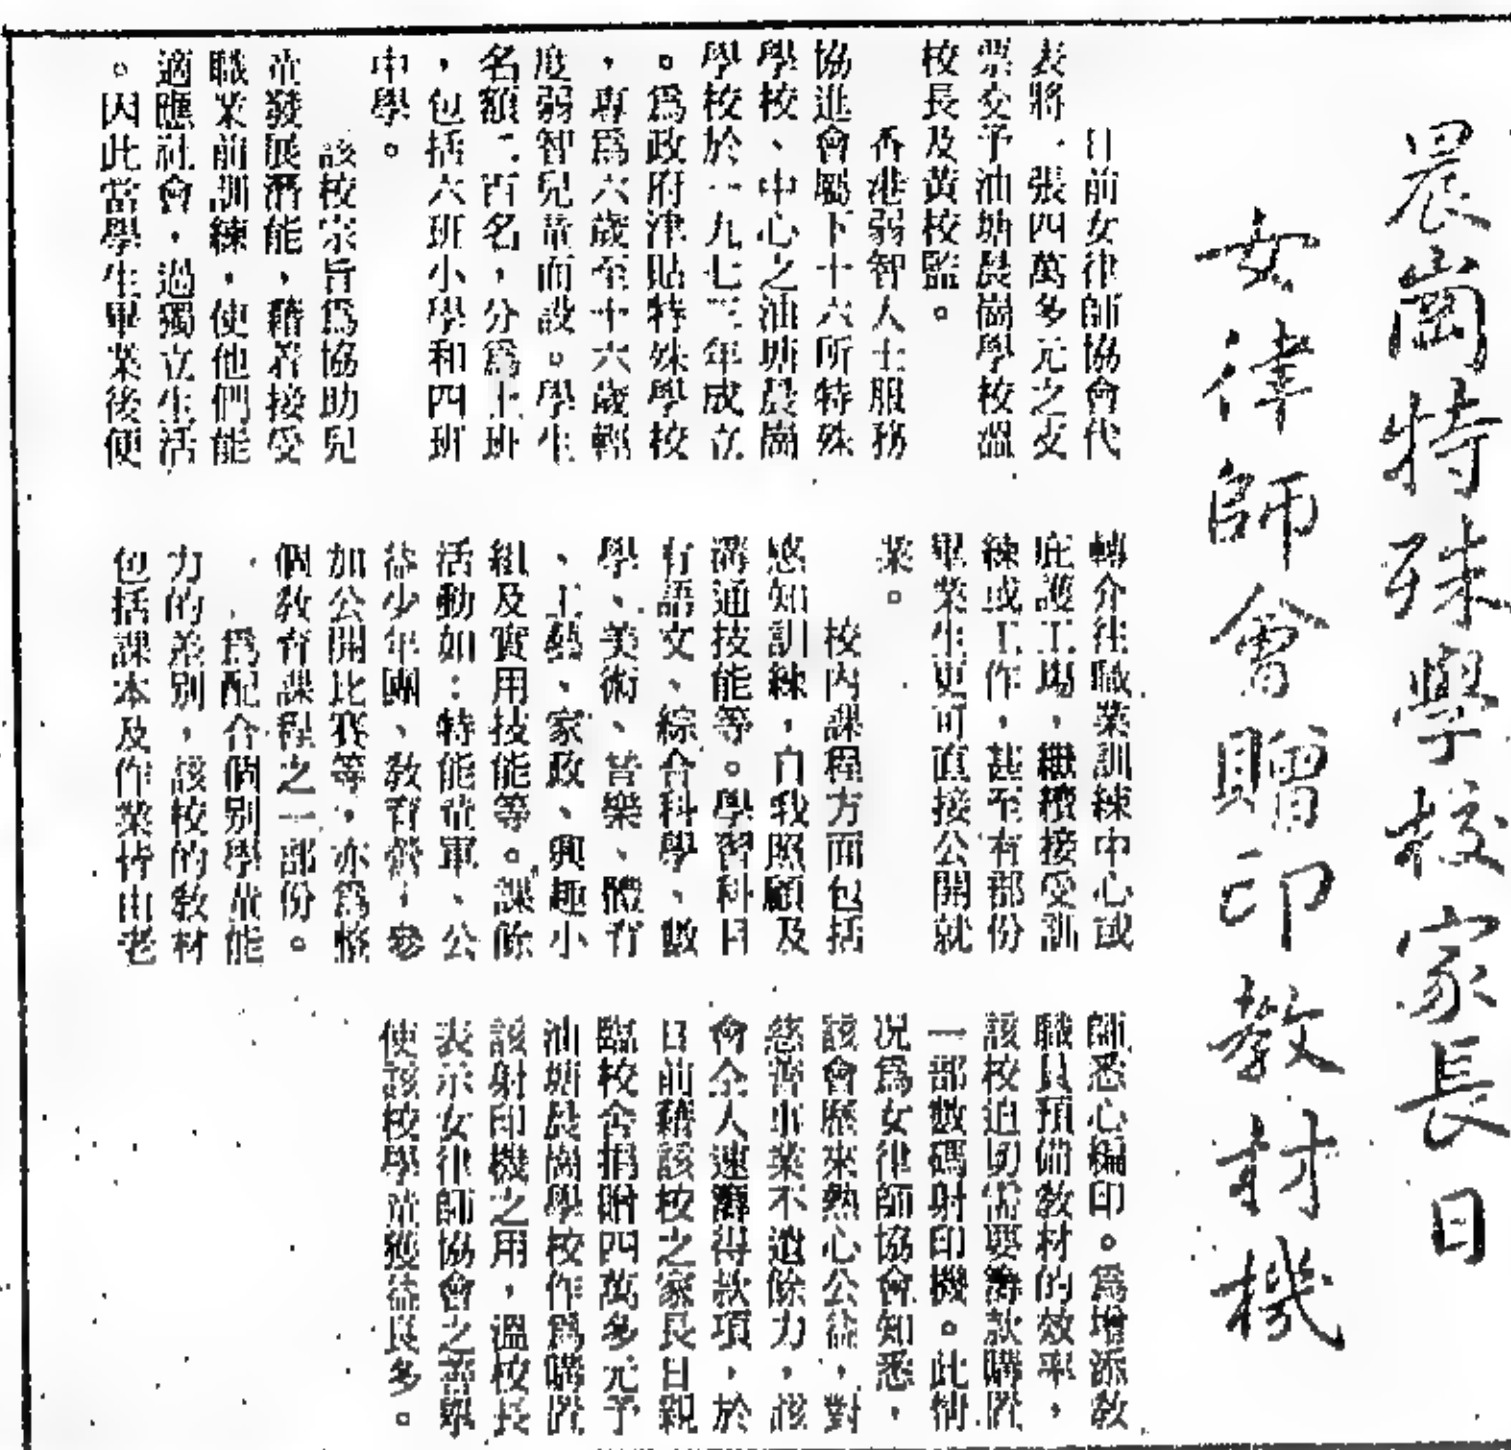 晨崗特殊學校家長日
女律師會贈印教材機
日前女律師協會代
表將一張四萬多元之支
票交予油塘晨崗學校溫
校長及黃校監。
香港弱智人士服務
協進會屬下十六所特殊
學校、中心之油塘晨崗
學校於一九七三年成立
。爲政府津貼特殊學校
，專爲六歲至十六歲輕
度弱智兒童而設。學生
名額二百名，分爲十班
，包括六班小學和四班
中學。
該校宗旨爲協助兒
童發展潛能，藉著接受
職業前訓練，使他們能
適應社會，過獨立生活
。因此當學生畢業後便
轉介往職業訓練中心或
庇護工場，繼續接受訓
練或工作，甚至有部份
畢業生更可直接公開就
業。
校內課程方面包括
感知訓練，自我照顧及
溝通技能等。學習科目
有語文、綜合科學、數
學、美術、音樂、體育
、工藝、家政、興趣小
組及實用技能等。課餘
活動如：特能童軍、公
益少年團、教育營，參
加公開比賽等，亦爲整
個教育課程之一部份。
爲配合個別學童能
力的差別，該校的教材
包括課本及作業皆由老
師悉心編印。爲增添教
職員預備教材的效率，
該校迫切需要籌款購置
一部數碼射印機。此情
況爲女律師協會知悉，
該會歷來熱心公益，對
慈善事業不遺餘力，該
會全人速籌得款項，於
日前藉該校之家長日親
臨校舍捐贈四萬多元予
油塘晨崗學校作爲購置
該射印機之用，溫校長
表示女律師協會之善舉
使該校學童獲益良多。